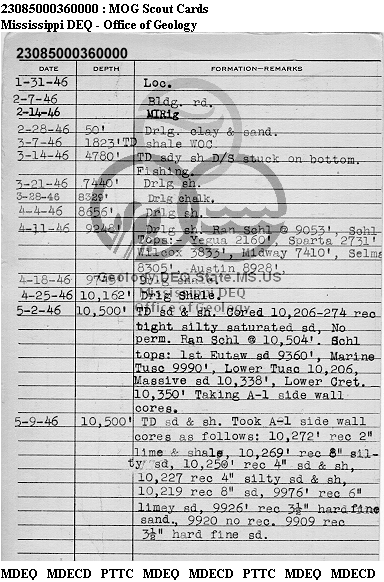 23085000360000 : MOG Scout Cards
Mississippi DEQ - Office of Geology
23085000360000
DATE DEPTH FORMATION—REMARKS
1-31-46 Loc.
2-7-46 Bldg. rd.
2-14-46 MIRig
2-28-46 50' Drlg. clay & sand.
3-7-46 1823'TD shale WOC.
3-14-46 4780' TD sdy sh D/S stuck on bottom.
Fishing.
3-21-46 7440' Drlg sh.
3-28-46 8329' Drlg chalk.
4-4-46 8656' Drlg sh.
4-11-46 9248' Drlg sh. Ran Schl @ 9053', Schl
Tops:- Yegua 2160', Sparta 2731'
Wilcox 3833', Midway 7410', Selma
8305', Austin 8928',
4-18-46 Drlg shale.
Geology.DEQ.State.MS.US
4-25-46 10,162' Drlg Shale.
Mississippi DEQ
5-2-46 10,500' TD sd & sh. Cored 10,206-274 rec
Office of Geology
tight silty saturated sd, No
perm. Ran Schl @ 10,504'. Schl
tops: 1st Eutaw sd 9360', Marine
Tusc 9990', Lower Tusc 10,206,
Massive sd 10,338', Lower Cret.
10,350' Taking A-1 side wall
cores.
5-9-46 10,500' TD sd & sh. Took A-1 side wall
cores as follows: 10,272' rec 2"
lime & shale, 10,269' rec 8" sil-
ty sd, 10,250' rec 4" sd & sh,
10,227 rec 4" silty sd & sh,
10,219 rec 8" sd, 9976' rec 6"
limey sd, 9926' rec 3½" hard fine
sand., 9920 no rec. 9909 rec
3½" hard fine sd.
MDEQ MDECD PTTC MDEQ MDECD PTTC MDEQ MDECD